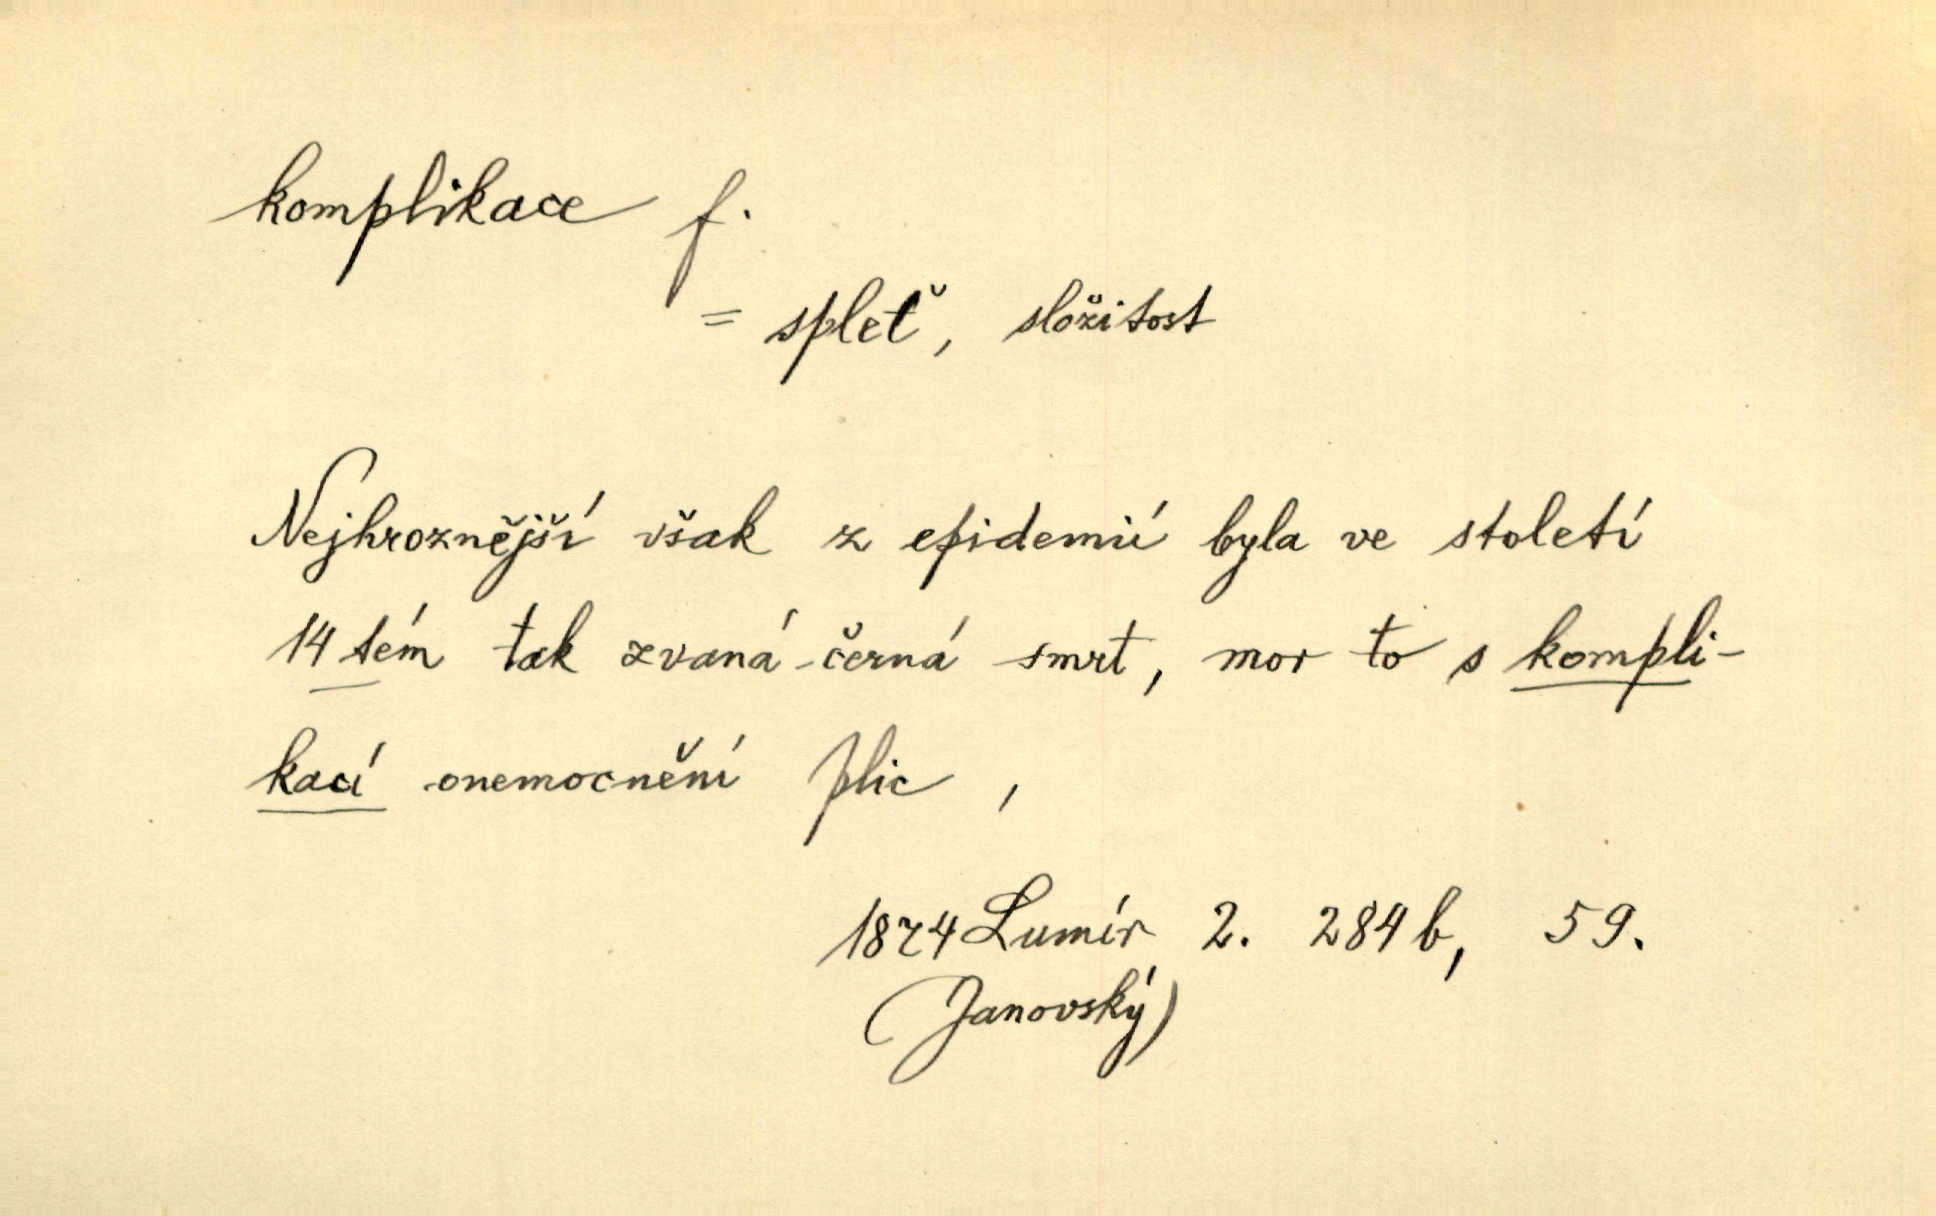 komplikace f.
= spleť, složitost
Nejhroznější však z epidemií byla ve století
14tém tak zvaná černá smrt, mor to s kompli-
kací onemocnění plic,
1874 Lumír 2. 284b, 59.
(Janovský)